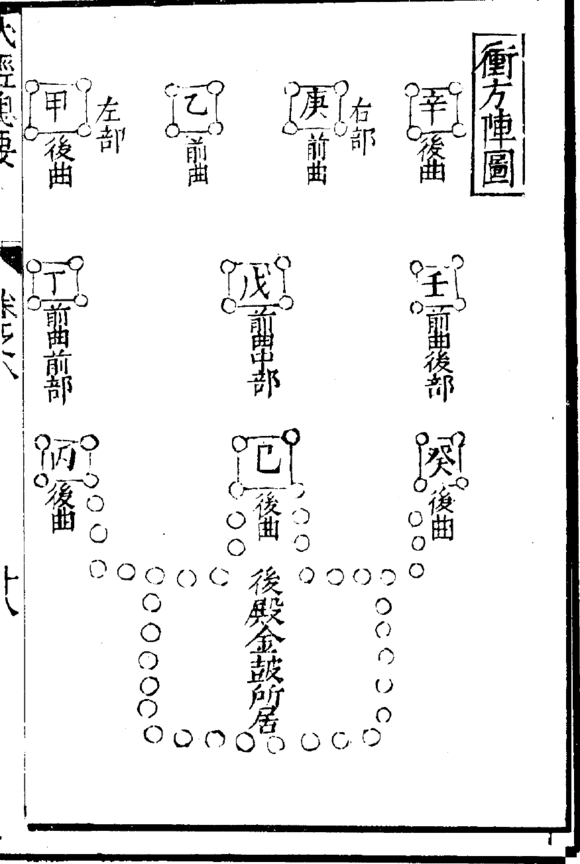 衝方陣圖
辛
後曲
右部
庚
前曲
乙
前曲
左部
甲
後曲
壬
前曲後部
戊
前曲中部
丁
前曲前部
癸
後曲
己
後曲
丙
後曲
後殿金鼓所居
十八